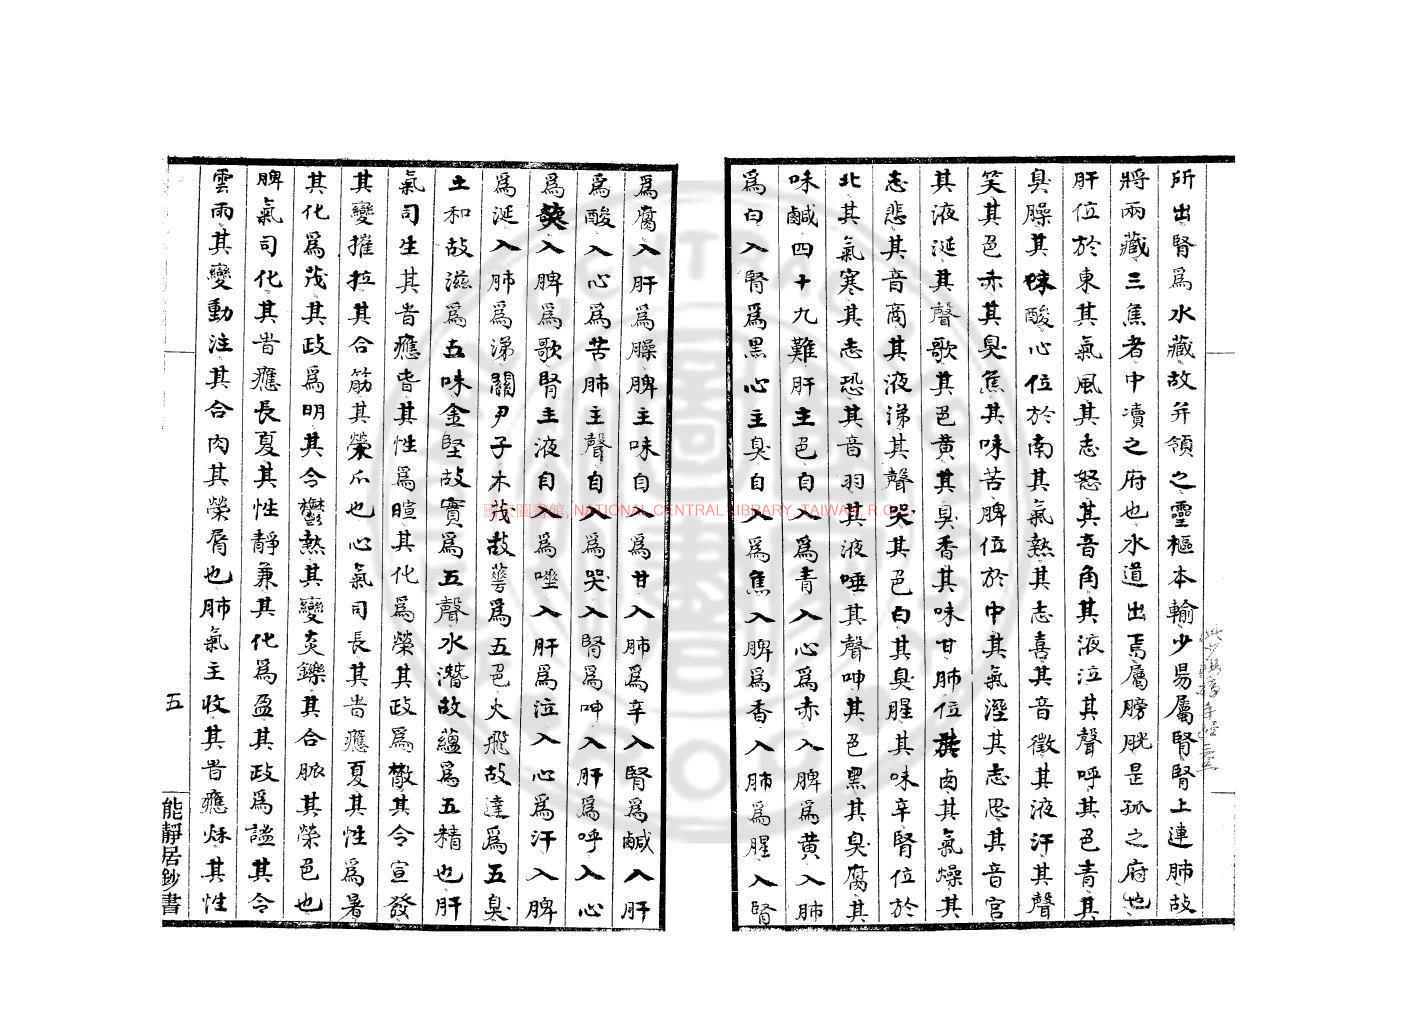 所出腎爲水藏故并領之靈樞本輸少陽屬腎腎上連肺故
將兩藏三焦者中瀆之府也水道出焉屬膀胱是孤之府也
肝位於東其氣風其志怒其音角其液泣其聲呼其色青其
臭臊其味酸心位於南其氣熱其志喜其音徵其液汗其聲
笑其色赤其臭焦其味苦脾位於中其氣溼其志思其音宮
其液涎其聲歌其色黃其臭香其味甘肺位於西其氣燥其
志悲其音商其液涕其聲哭其色白其臭腥其味辛腎位於
北其氣寒其志恐其音羽其液唾其聲呻其色黑其臭腐其
味鹹四十九難肝主色自入爲青入心爲赤入脾爲黃入肺
爲白入腎爲黑心主臭自入爲焦入脾爲香入肺爲腥入腎
爲腐入肝爲臊脾主味自入爲甘入肺爲辛入腎爲鹹入肝
爲酸入心爲苦肺主聲自入爲哭入腎爲呻入肝爲呼入心
爲笑入脾爲歌腎主液自入爲唾入肝爲泣入心爲汗入脾
爲涎入肺爲涕關尹子木茂故華爲五色火飛故達爲五臭
土和故滋爲五味金堅故實爲五聲水潛故蘊爲五精也肝
氣司生其旹應春其性爲暄其化爲榮其政爲散其令宣發
其變摧拉其合筋其榮爪也心氣司長其旹應夏其性爲暑
其化爲茂其政爲明其令鬱熱其變炎鑠其合脈其榮色也
脾氣司化其旹應長夏其性靜兼其化爲盈其政爲謐其令
雲雨其變動注其合肉其榮脣也肺氣主收其旹應秌其性
五
能靜居鈔書
國家圖書館, NATIONAL CENTRAL LIBRARY, TAIWAN, R.O.C.